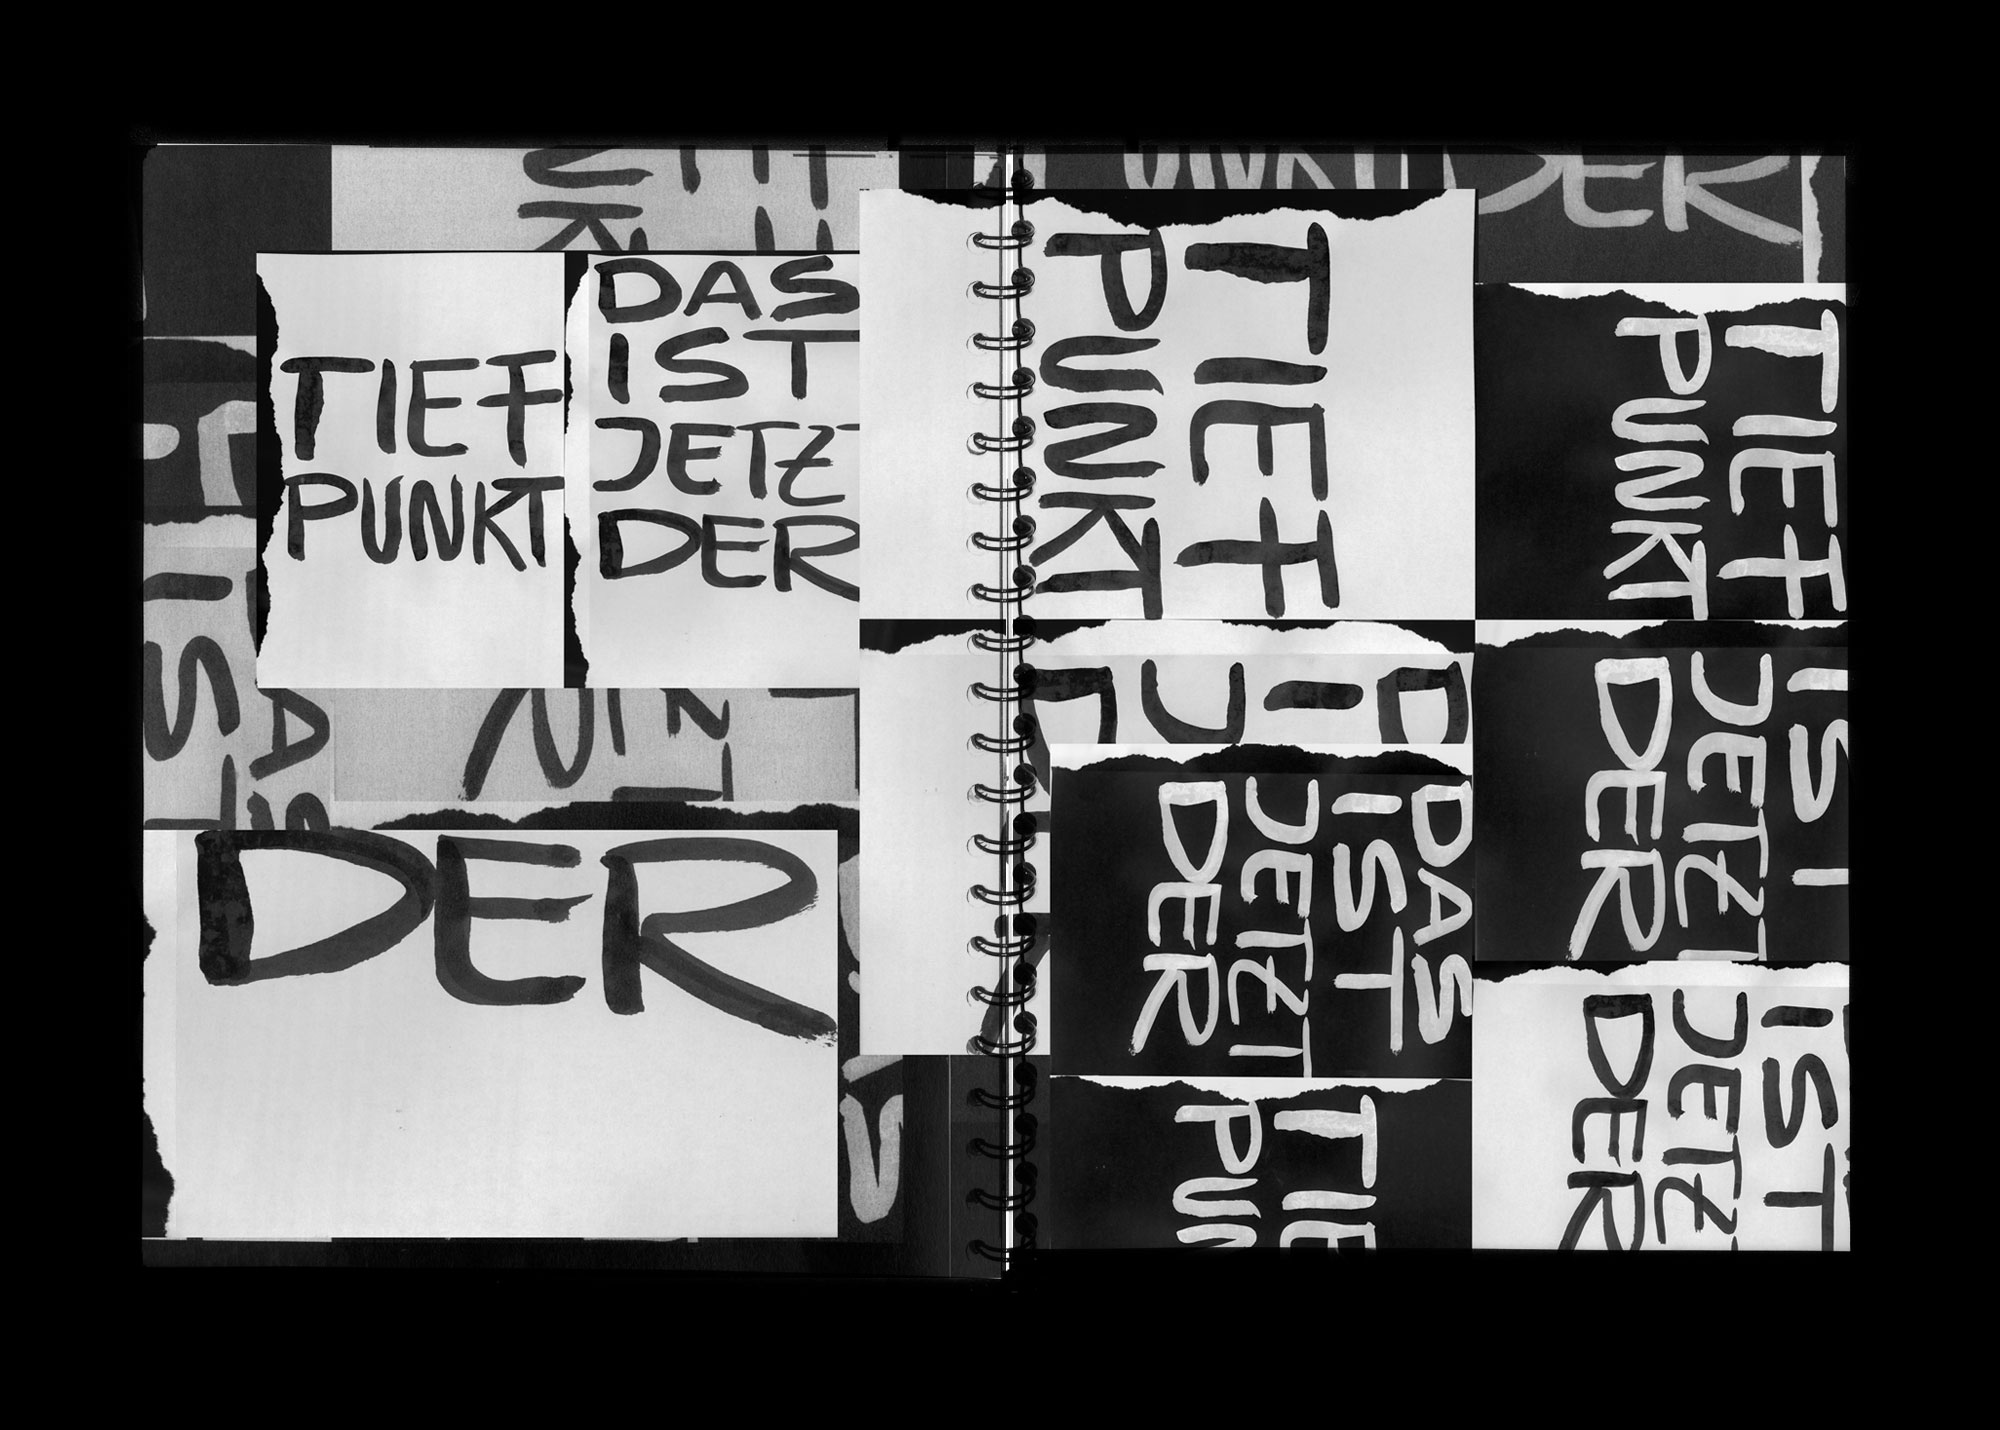 DER
TIEF
PUNKT
DAS
IST
JETZT
DER
TIEF
PUNKT
TIEF
PUNKT
IST
AS
DER
DAS
IST
JETZT
DER
IST
JETZT
DER
TIEF
PUN
IST
JETZ
DER